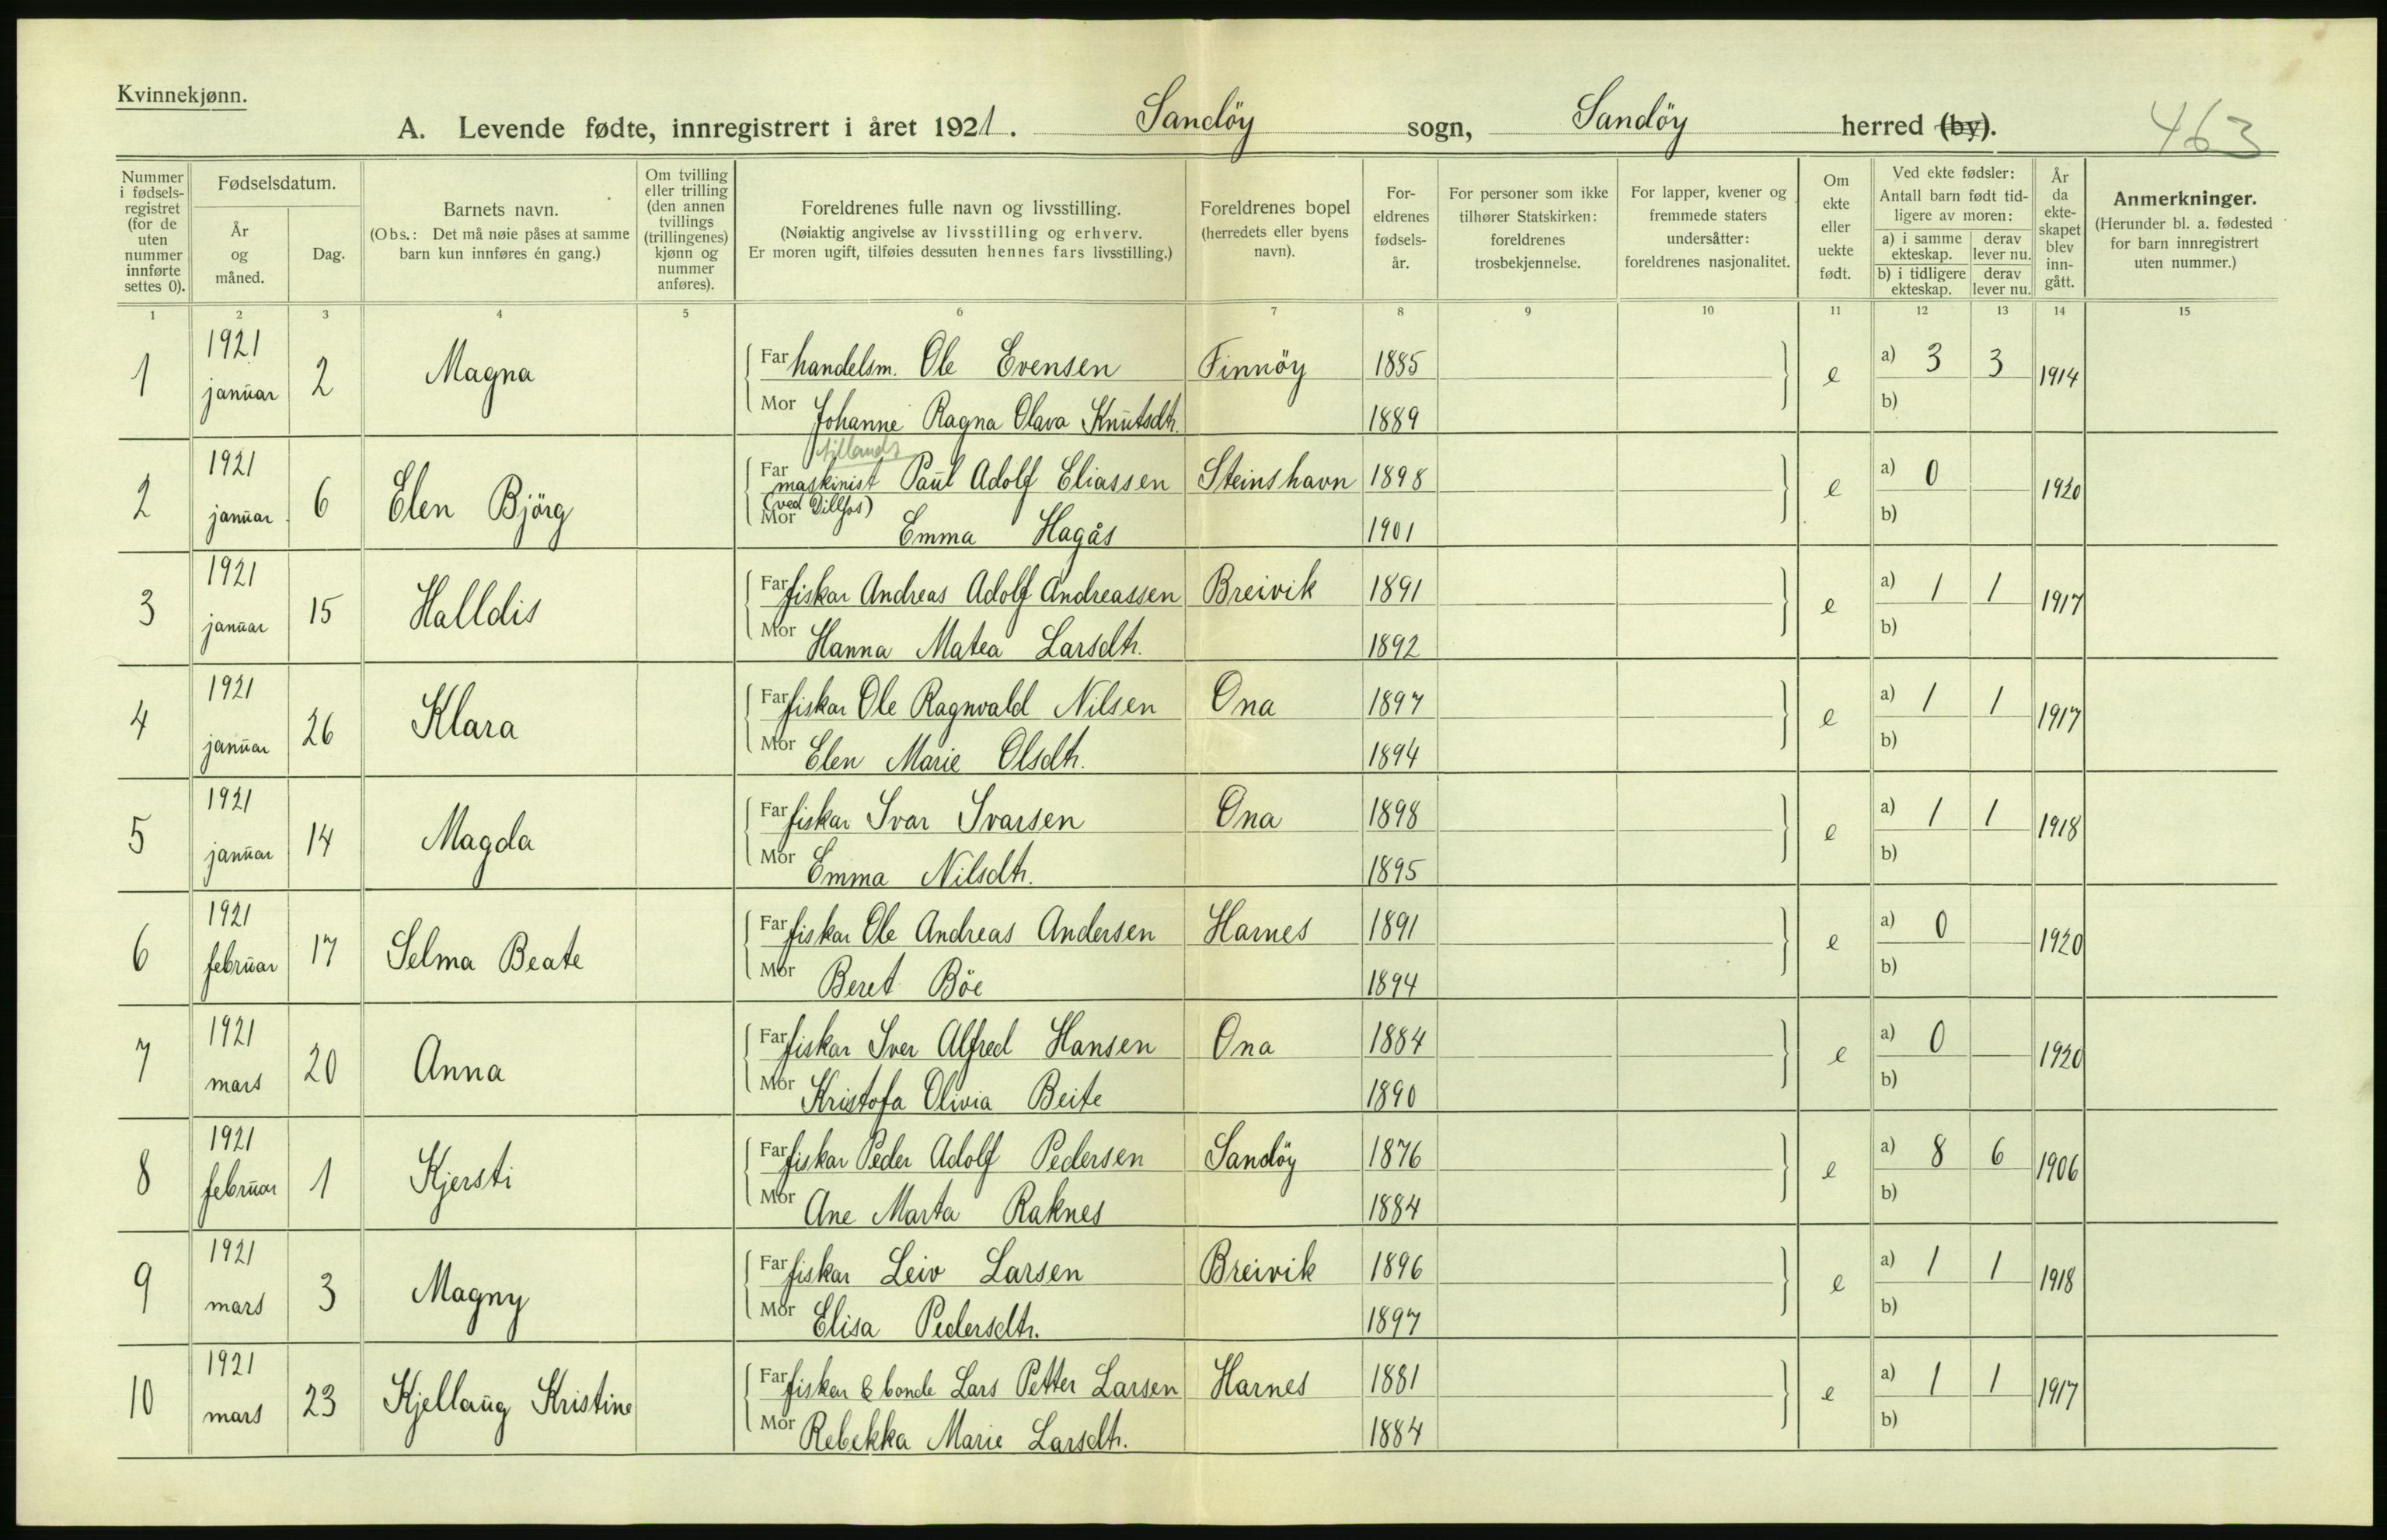 Kvinnekjønn.
A. Levende fødte, innregistrert i året 1921. Sandöy sogn, Sandöy herred (by). 463
Nummer i fødsels-registret (for de uten nummer innførte settes 0).
Fødselsdatum.
År og måned.
Dag.
Barnets navn.
(Obs.: Det må nøie påses at samme barn kun innføres én gang.)
Om tvilling eller trilling (den annen tvillings (trillingenes) kjønn og nummer anføres).
Foreldrenes fulle navn og livsstilling.
(Nøiaktig angivelse av livsstilling og erhverv.
Er moren ugift, tilføies dessuten hennes fars livsstilling.)
Foreldrenes bopel (herredets eller byens navn).
For-eldrenes fødsels-år.
For personer som ikke tilhører Statskirken: foreldrenes trosbekjennelse.
For lapper, kvener og fremmede staters undersåtter: foreldrenes nasjonalitet.
Om ekte eller uekte født.
Ved ekte fødsler:
Antall barn født tid-ligere av moren:
a) i samme ekteskap. derav lever nu.
b) i tidligere ekteskap. derav lever nu.
År da ekte-skapet blev inn-gått.
Anmerkninger.
(Herunder bl. a. fødested for barn innregistrert uten nummer.)
1 2 3 4 5 6 7 8 9 10 11 12 13 14 15
1 1921 januar 2 Magna Far handelsm. Ole Evensen Finnöy 1885 e a) 3 3 1914
Mor Johanne Ragna Olava Knutsdtr. 1889 b)
2 1921 januar 6 Elen Björg Far maskinist Paul Adolf Eliassen Steinshavn 1898 e a) 0 1920
Mor Emma Hagås 1901 b)
3 1921 januar 15 Halldis Far fiskar Andreas Adolf Andreassen Breivik 1891 e a) 1 1 1917
Mor Hanna Matea Larsdtr. 1892 b)
4 1921 januar 26 Klara Far fiskar Ole Ragnvald Nilsen Ona 1897 e a) 1 1 1917
Mor Elen Marie Olsdtr. 1894 b)
5 1921 januar 14 Magda Far fiskar Ivar Ivarsen Ona 1898 e a) 1 1 1918
Mor Emma Nilsdtr. 1895 b)
6 1921 februar 17 Selma Beate Far fiskar Ole Andreas Andersen Harnes 1891 e a) 0 1920
Mor Beret Böe 1894 b)
7 1921 mars 20 Anna Far fiskar Iver Alfred Hansen Ona 1884 e a) 0 1920
Mor Kristofa Olivia Beite 1890 b)
8 1921 februar 1 Kjersti Far fiskar Peder Adolf Pedersen Sandöy 1876 e a) 8 6 1906
Mor Ane Marta Raknes 1884 b)
9 1921 mars 3 Magny Far fiskar Leiv Larsen Breivik 1896 e a) 1 1 1918
Mor Elisa Pedersdtr. 1897 b)
10 1921 mars 23 Kjellaug Kristine Far fiskar & bonde Lars Petter Larsen Harnes 1881 e a) 1 1 1917
Mor Rebekka Marie Larsdtr. 1884 b)